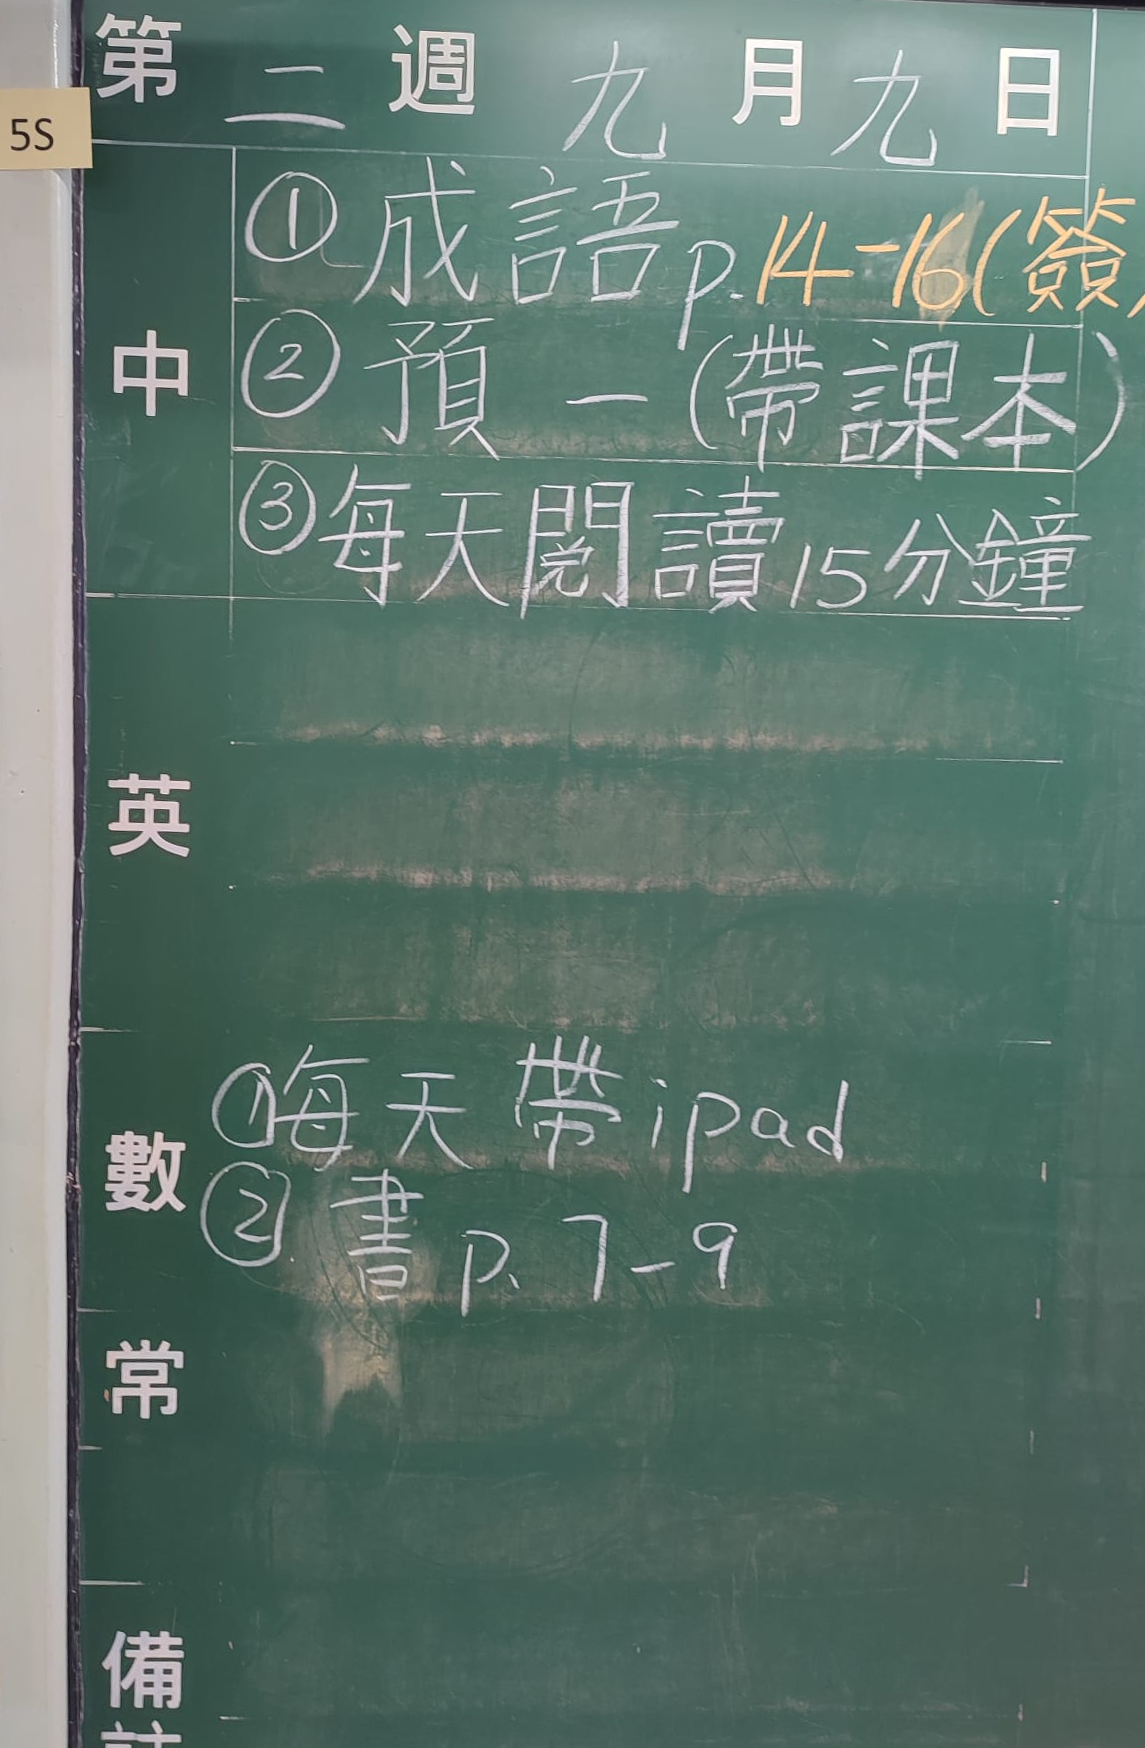 第二週九月九日
5S
①成語p.14-16(簽)
中
②預一(帶課本)
③每天閱讀15分鐘
英
①每天帶ipad
數
②書p.7-9
常
備
註